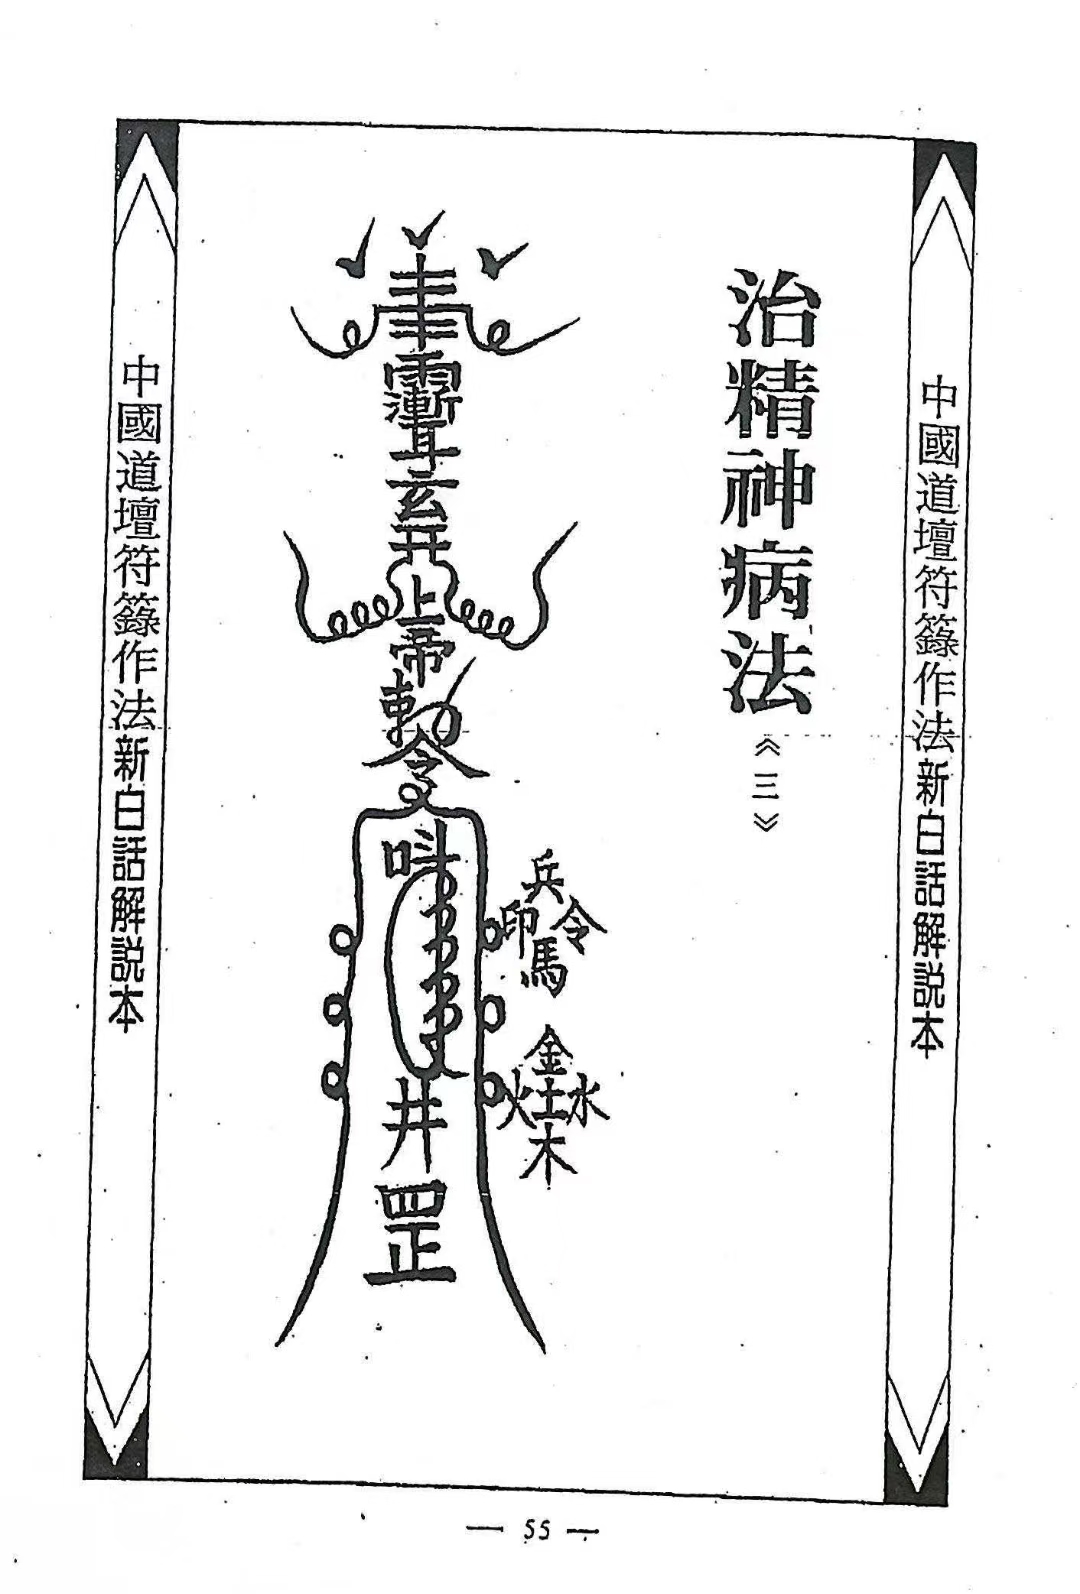 中國道壇符籙作法新白話解說本
治精神病法
《三》
上帝
敕
令
井
罡
兵
印 令
馬
金
火 土 水
木
中國道壇符籙作法新白話解說本
— 55 —